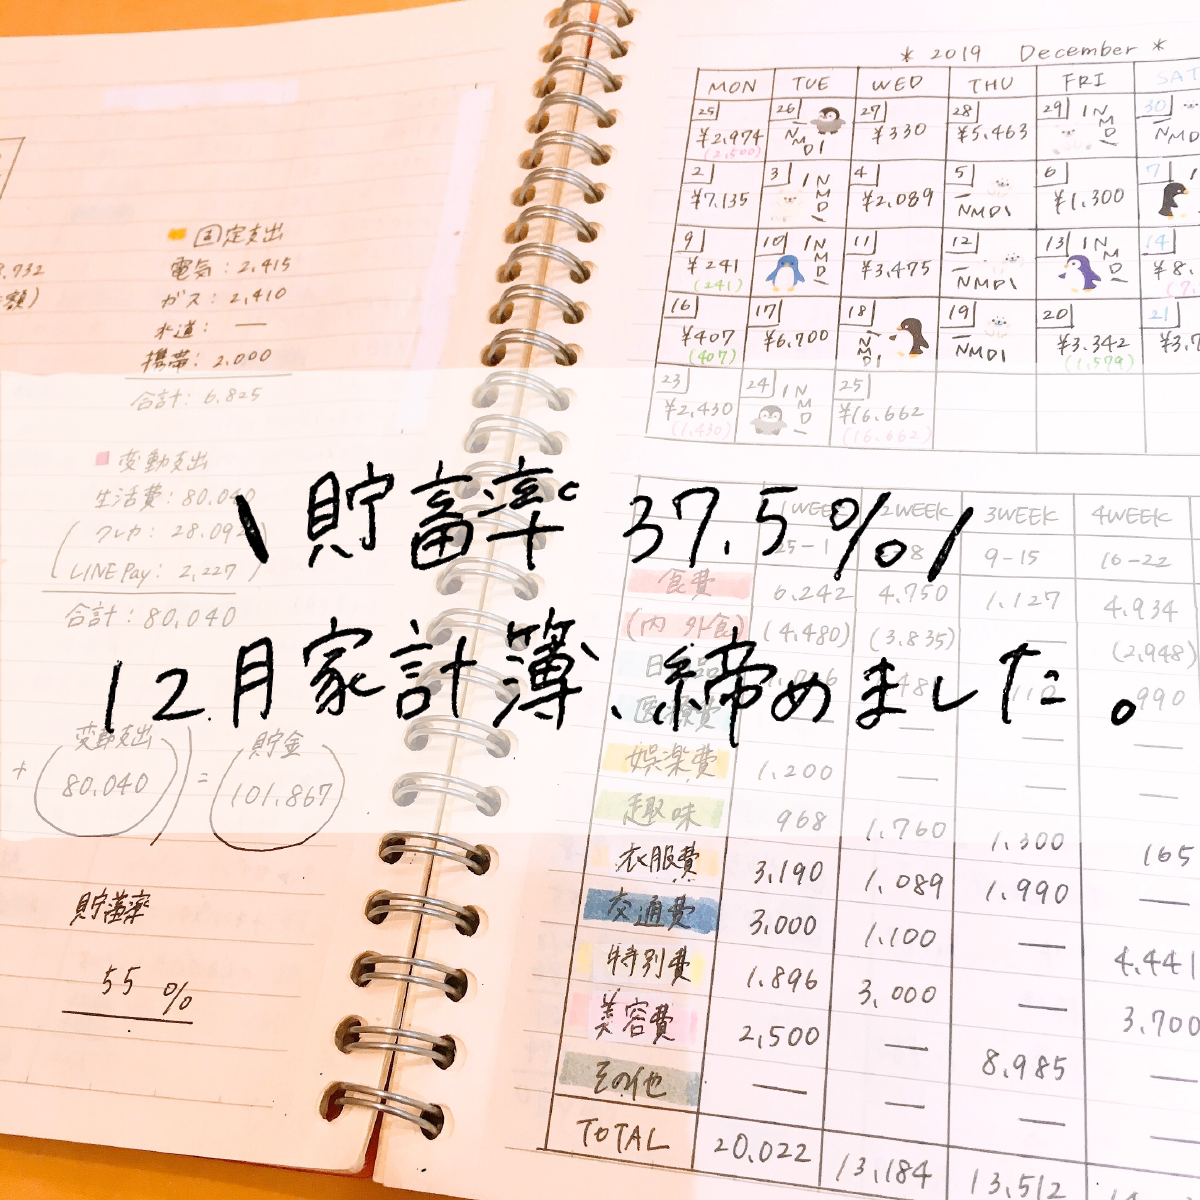 \ 貯蓄率 37.5% /
12月家計簿、締めました。
8,732
固定支出
電気: 2,415
ガス: 2,410
水道: —
携帯: 2,000
合計: 6,825
変動支出
生活費: 80,040
LINE Pay: 2,227
合計: 80,040
変動支出 貯金
+ 80,040 ) = 101,867
貯蓄率
55 %
* 2019 December *
MON TUE WED THU FRI SAT
25 26 27 28 29 30
¥2,974 NMD! ¥330 ¥5,463 NMD! NMD
(2,500)
2 3 4 5 6 7
¥7,135 NMD! ¥2,089 NMD! ¥1,300
9 10 11 12 13 14
¥241 NMD! ¥3,475 NMD! NMD! ¥8,
(241)
16 17 18 19 20 21
¥407 ¥6,700 NMD! NMD! ¥3,342 ¥3,7
(407) (1,579)
23 24 25
¥2,430 NMD! ¥16,662
(1,430) (16,662)
1WEEK 2WEEK 3WEEK 4WEEK
25-1 9-15 16-22
食費 6,242 4,750 1,127 4,934
(内 外食) (4,480) (3,835) — (2,948)
990
医療費 — — —
娯楽費 1,200 — — —
趣味 968 1,760 1,300 165
衣服費 3,190 1,089 1,990 —
交通費 3,000 1,100 — 4,441
特別費 1,896 3,000 — 3,700
美容費 2,500 — 8,985 —
その他 — — — —
TOTAL 20,022 13,184 13,512